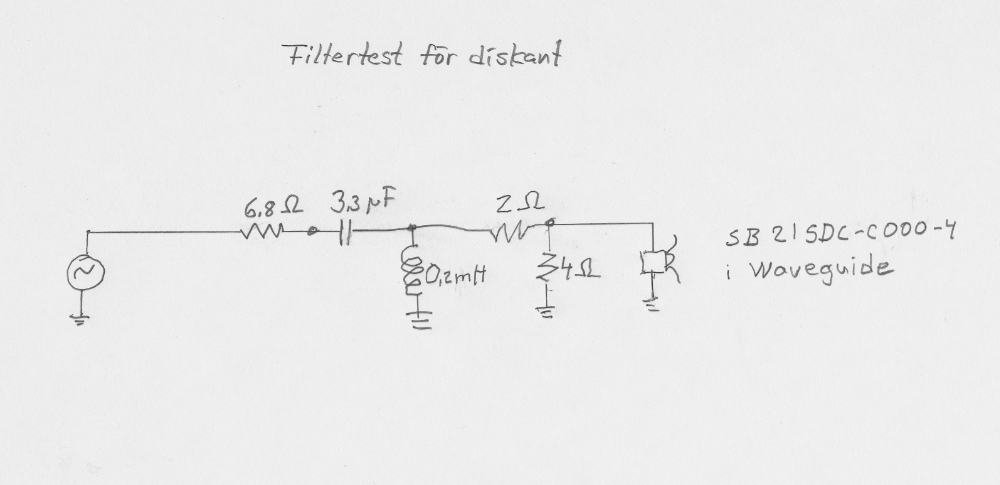 Filtertest för diskant
6.8 Ω
3.3 µF
2 Ω
0,2mH
4Ω
SB 21SDC-C000-4
i Waveguide